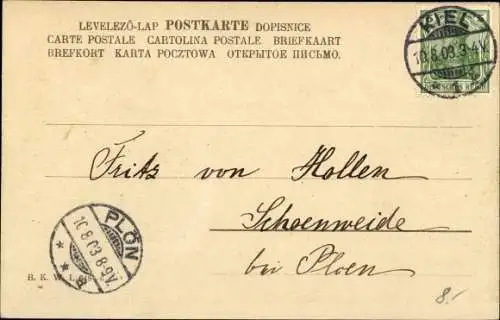 LEVELEZŐ-LAP POSTKARTE DOPISNICE
CARTE POSTALE CARTOLINA POSTALE BRIEFKAART
BREFKORT KARTA POCZTOWA ОТКРЫТОЕ ПИСЬМО.
KIEL
10.8.03.3-4V.
1
DEUTSCHES REICH
Fritz von Hollen
Schoenweide
bei Ploen
PLÖN
10.8.03.8-9V.
* * a
B. K. W. I.
8.-